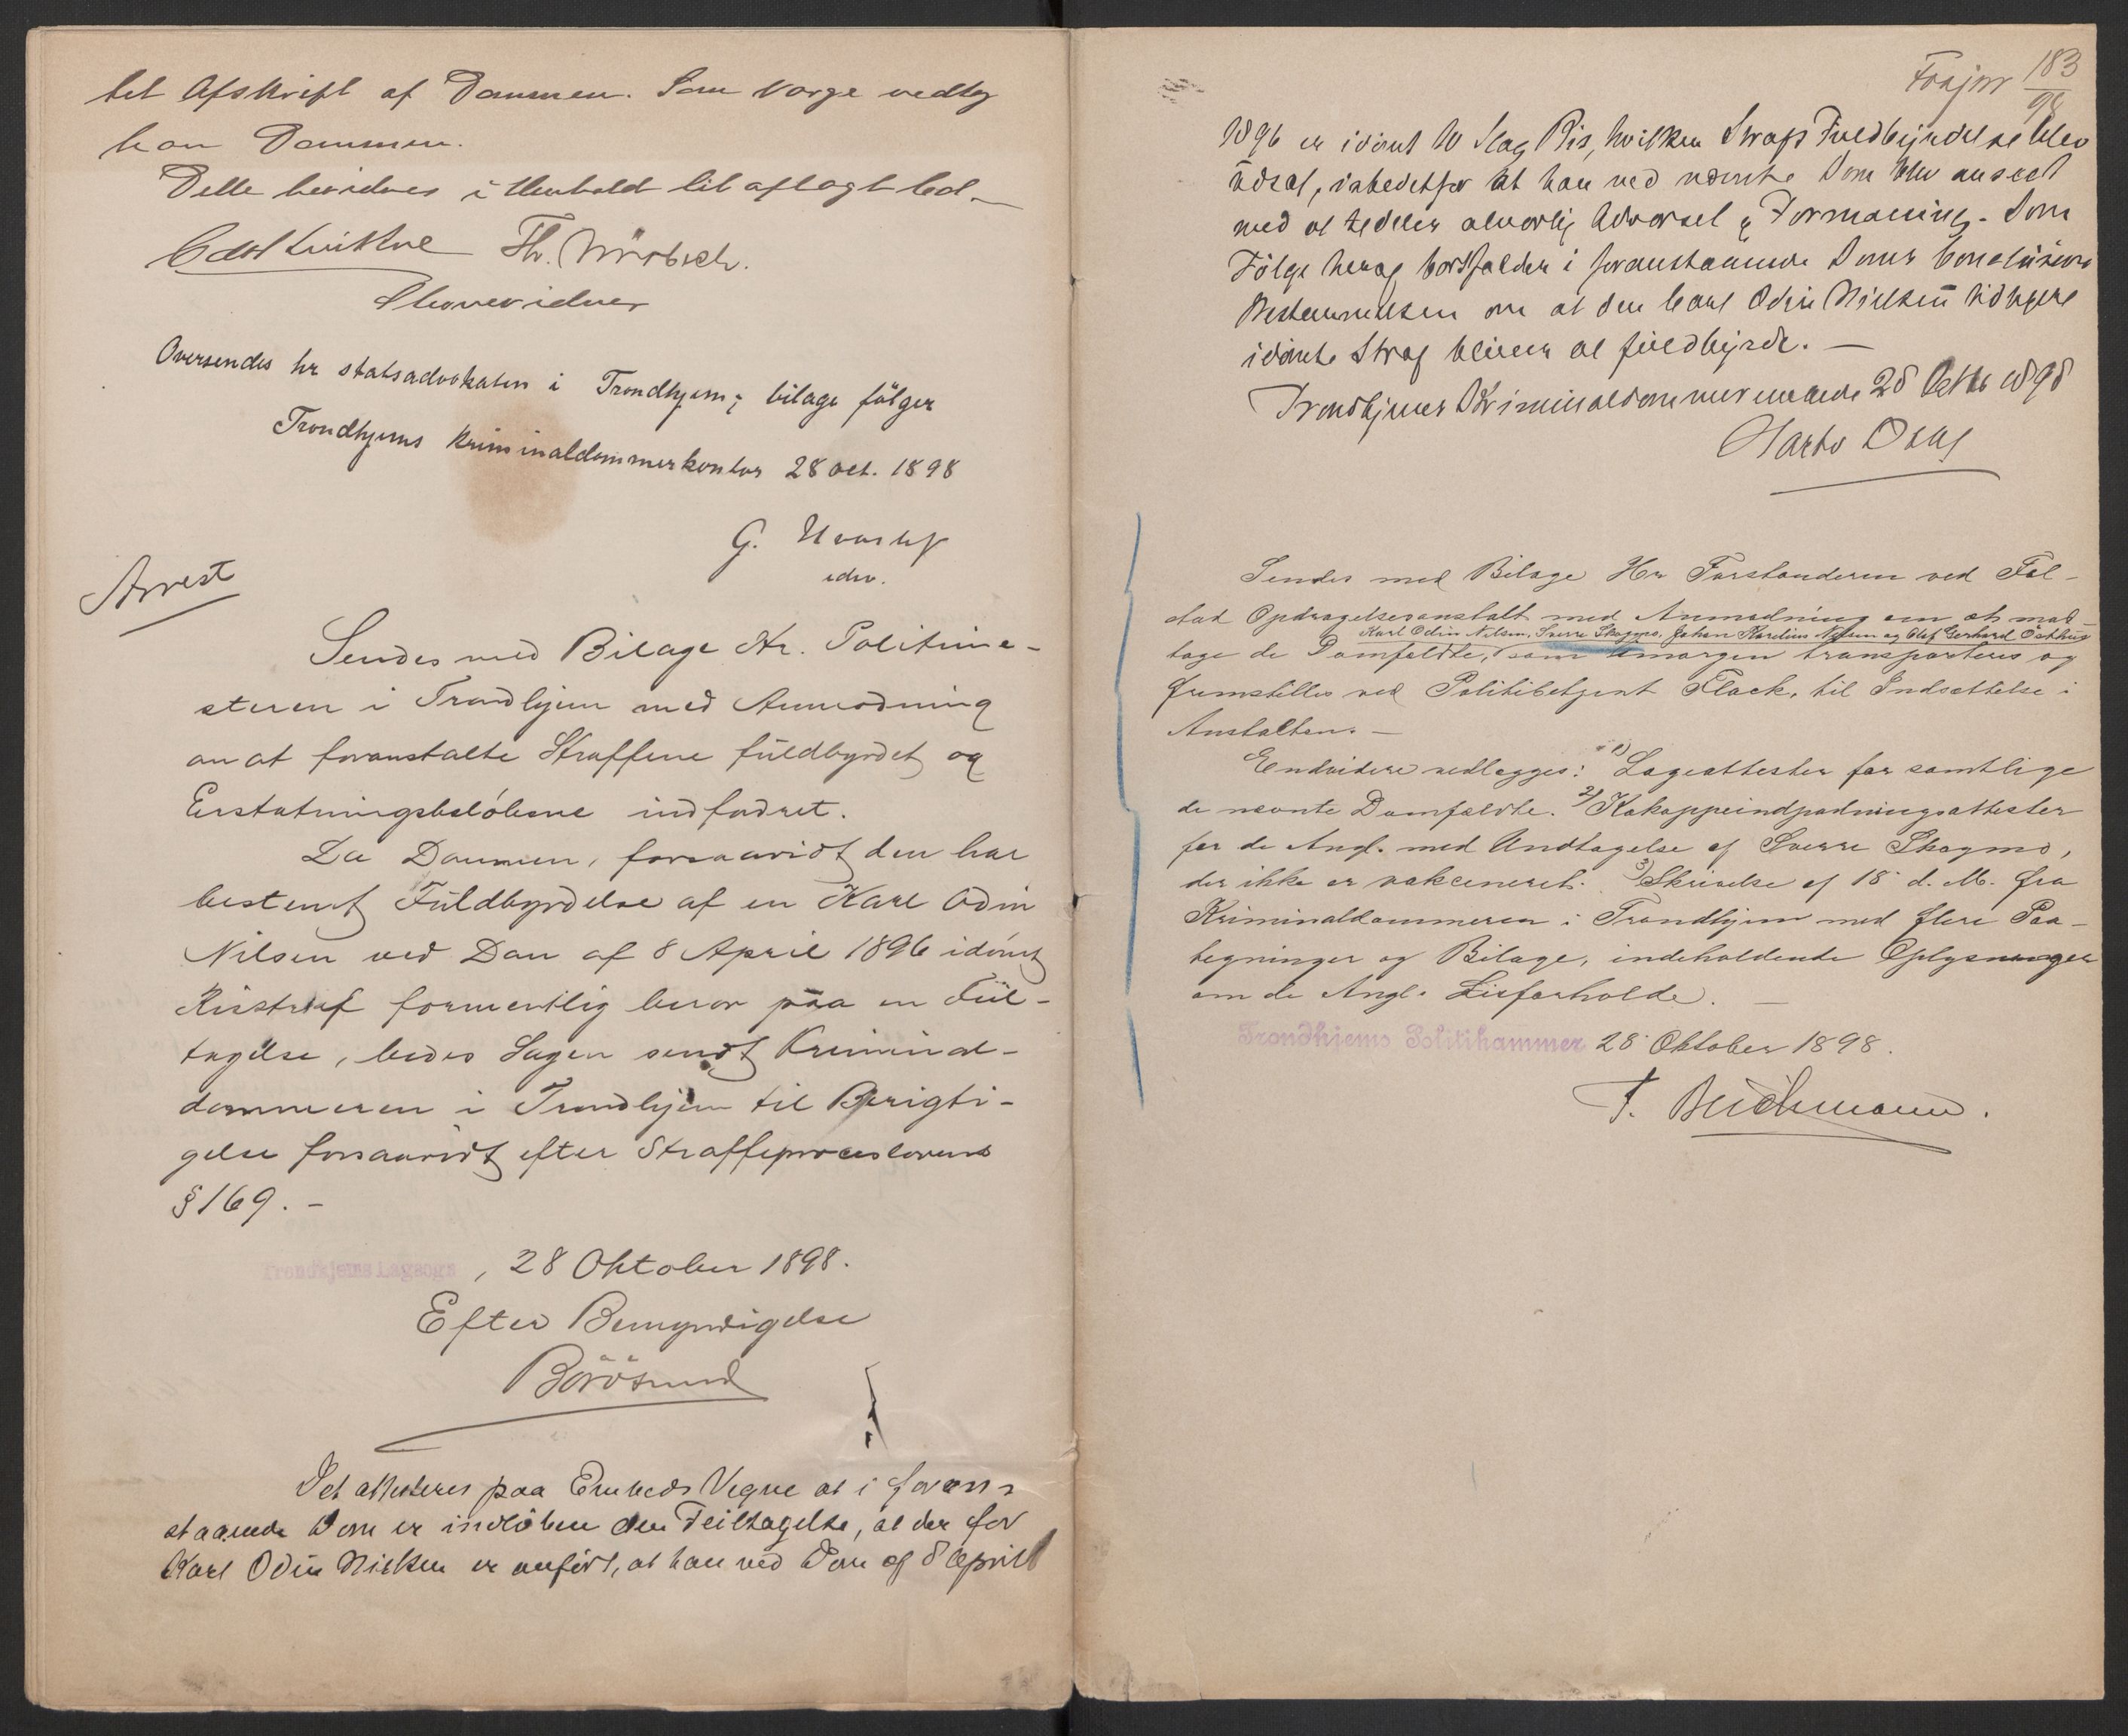 tet Afskrift af Dommen. Som Værge vedtog
han Dommen.
Dette bevidnes i Henhold til aflagt Ed.
Th.
Stævnevidner
Oversendes hr statsadvokaten i Trondhjem; bilage følger
Trondhjems kriminaldommerkontor 28 oct. 1898
G.
edv.
Arrest
Sendes med Bilage Hr. Politime-
steren i Trondhjem med Anmodning
om at foranstalte Straffene fuldbyrdet og
Erstatningsbeløbene indfordret.
Da Dommen, forsaavidt den har
bestemt Fuldbyrdelse af en Karl Odin
Nilsen ved Dom af 8 April 1896 idømt
Risstraf formentlig beror paa en Feil-
tagelse, bedes Sagen sendt Kriminal-
dommeren i Trondhjem til Berigti-
gelse forsaavidt efter Straffeproceslovens
§ 169. -
Trondhjems Lagsogn, 28 Oktober 1898.
Efter Bemyndigelse
Børøsund
Det attesteres paa Embeds Vegne at i foran-
staaende Dom er indløben den Feiltagelse, at der for
Karl Odin Nielsen er anført, at han ved Dom af 8 April
Foajnr 183/98
1896 er idømt 10 Slag Ris, hvilken Strafs Fuldbyrdelse blev
udsat, istedetfor at han ved nævnte Dom blev anseet
med at tildeles alvorlig Advarsel & Formaning. Som
Følge heraf bortfalder i foranstaaende Doms Conclusion
Bestemmelsen om at den Carl Odin Nielsen tidligere
idømte Straf bliver at fuldbyrde. -
Trondhjems Kriminaldommerembede 28 Octbr 1898
Sendes med Bilage Hr Forstanderen ved Fal-
stad Opdragelsesanstalt med Anmodning om at mod-
Karl Odin Nilsen, Sverre Skogmo, Johan Karelius Nilsen og Olaf Gerhard Østhus
tage de Domfældte, som imorgen transporteres og
fremstilles ved Politibetjent Flack, til Indsættelse i
Anstalten. -
Endvidere vedlægges: 1) Lægeattester for samtlige
de nævnte Domfældte. 2) Kokoppeindpodningsattester
for de Angl. med Undtagelse af Sverre Skogmo,
der ikke er vakceneret. 3) Skrivelse af 18 d. M. fra
Kriminaldommeren i Trondhjem med flere Paa-
tegninger og Bilage, indeholdende Oplysninger
om de Angl. Livsforholde. -
Trondhjems Politikammer 28 Oktober 1898.
T. Buchmann.